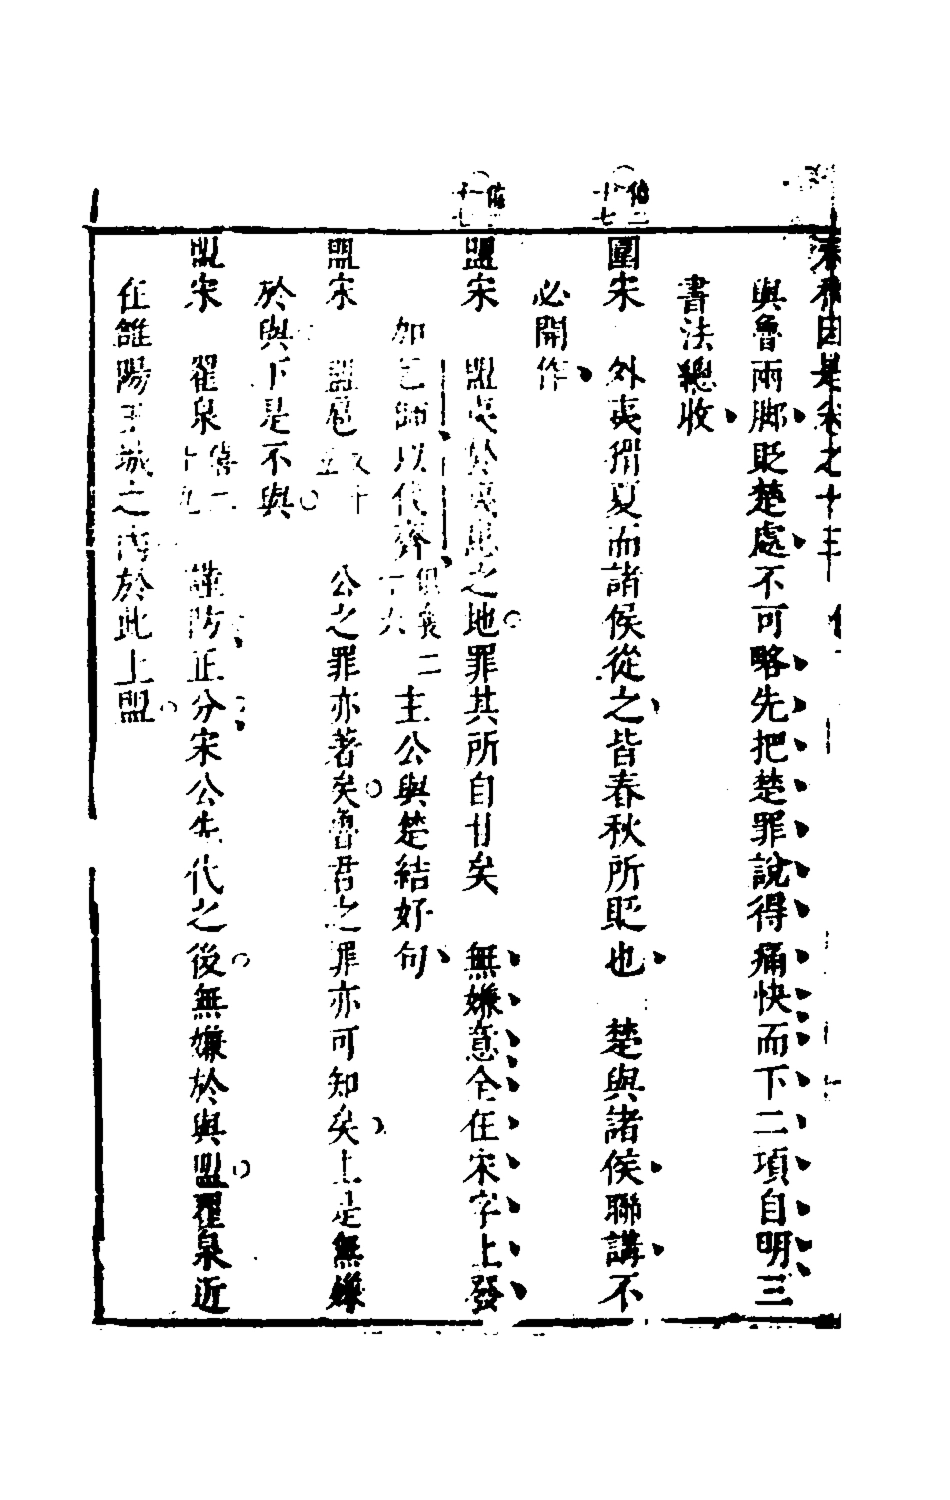 春秋因是卷之十三
與魯兩腳貶楚處不可略先把楚罪說得痛快而下二項自明三
書法總收
圍宋 外夷猾夏而諸侯從之皆春秋所貶也 楚與諸侯聯講不
必開作
盟宋 盟 之地罪其所自甘矣 無嫌意全在宋字上發
加 師以伐齊 僖 二十六 主公與楚結好句
盟宋 公之罪亦著矣魯君之罪亦可知矣上是無嫌
於與下是不與
盟宋 翟泉 僖二十九 防正分宋公先代之後無嫌於與盟翟泉近
在雒陽王城之內於此上盟